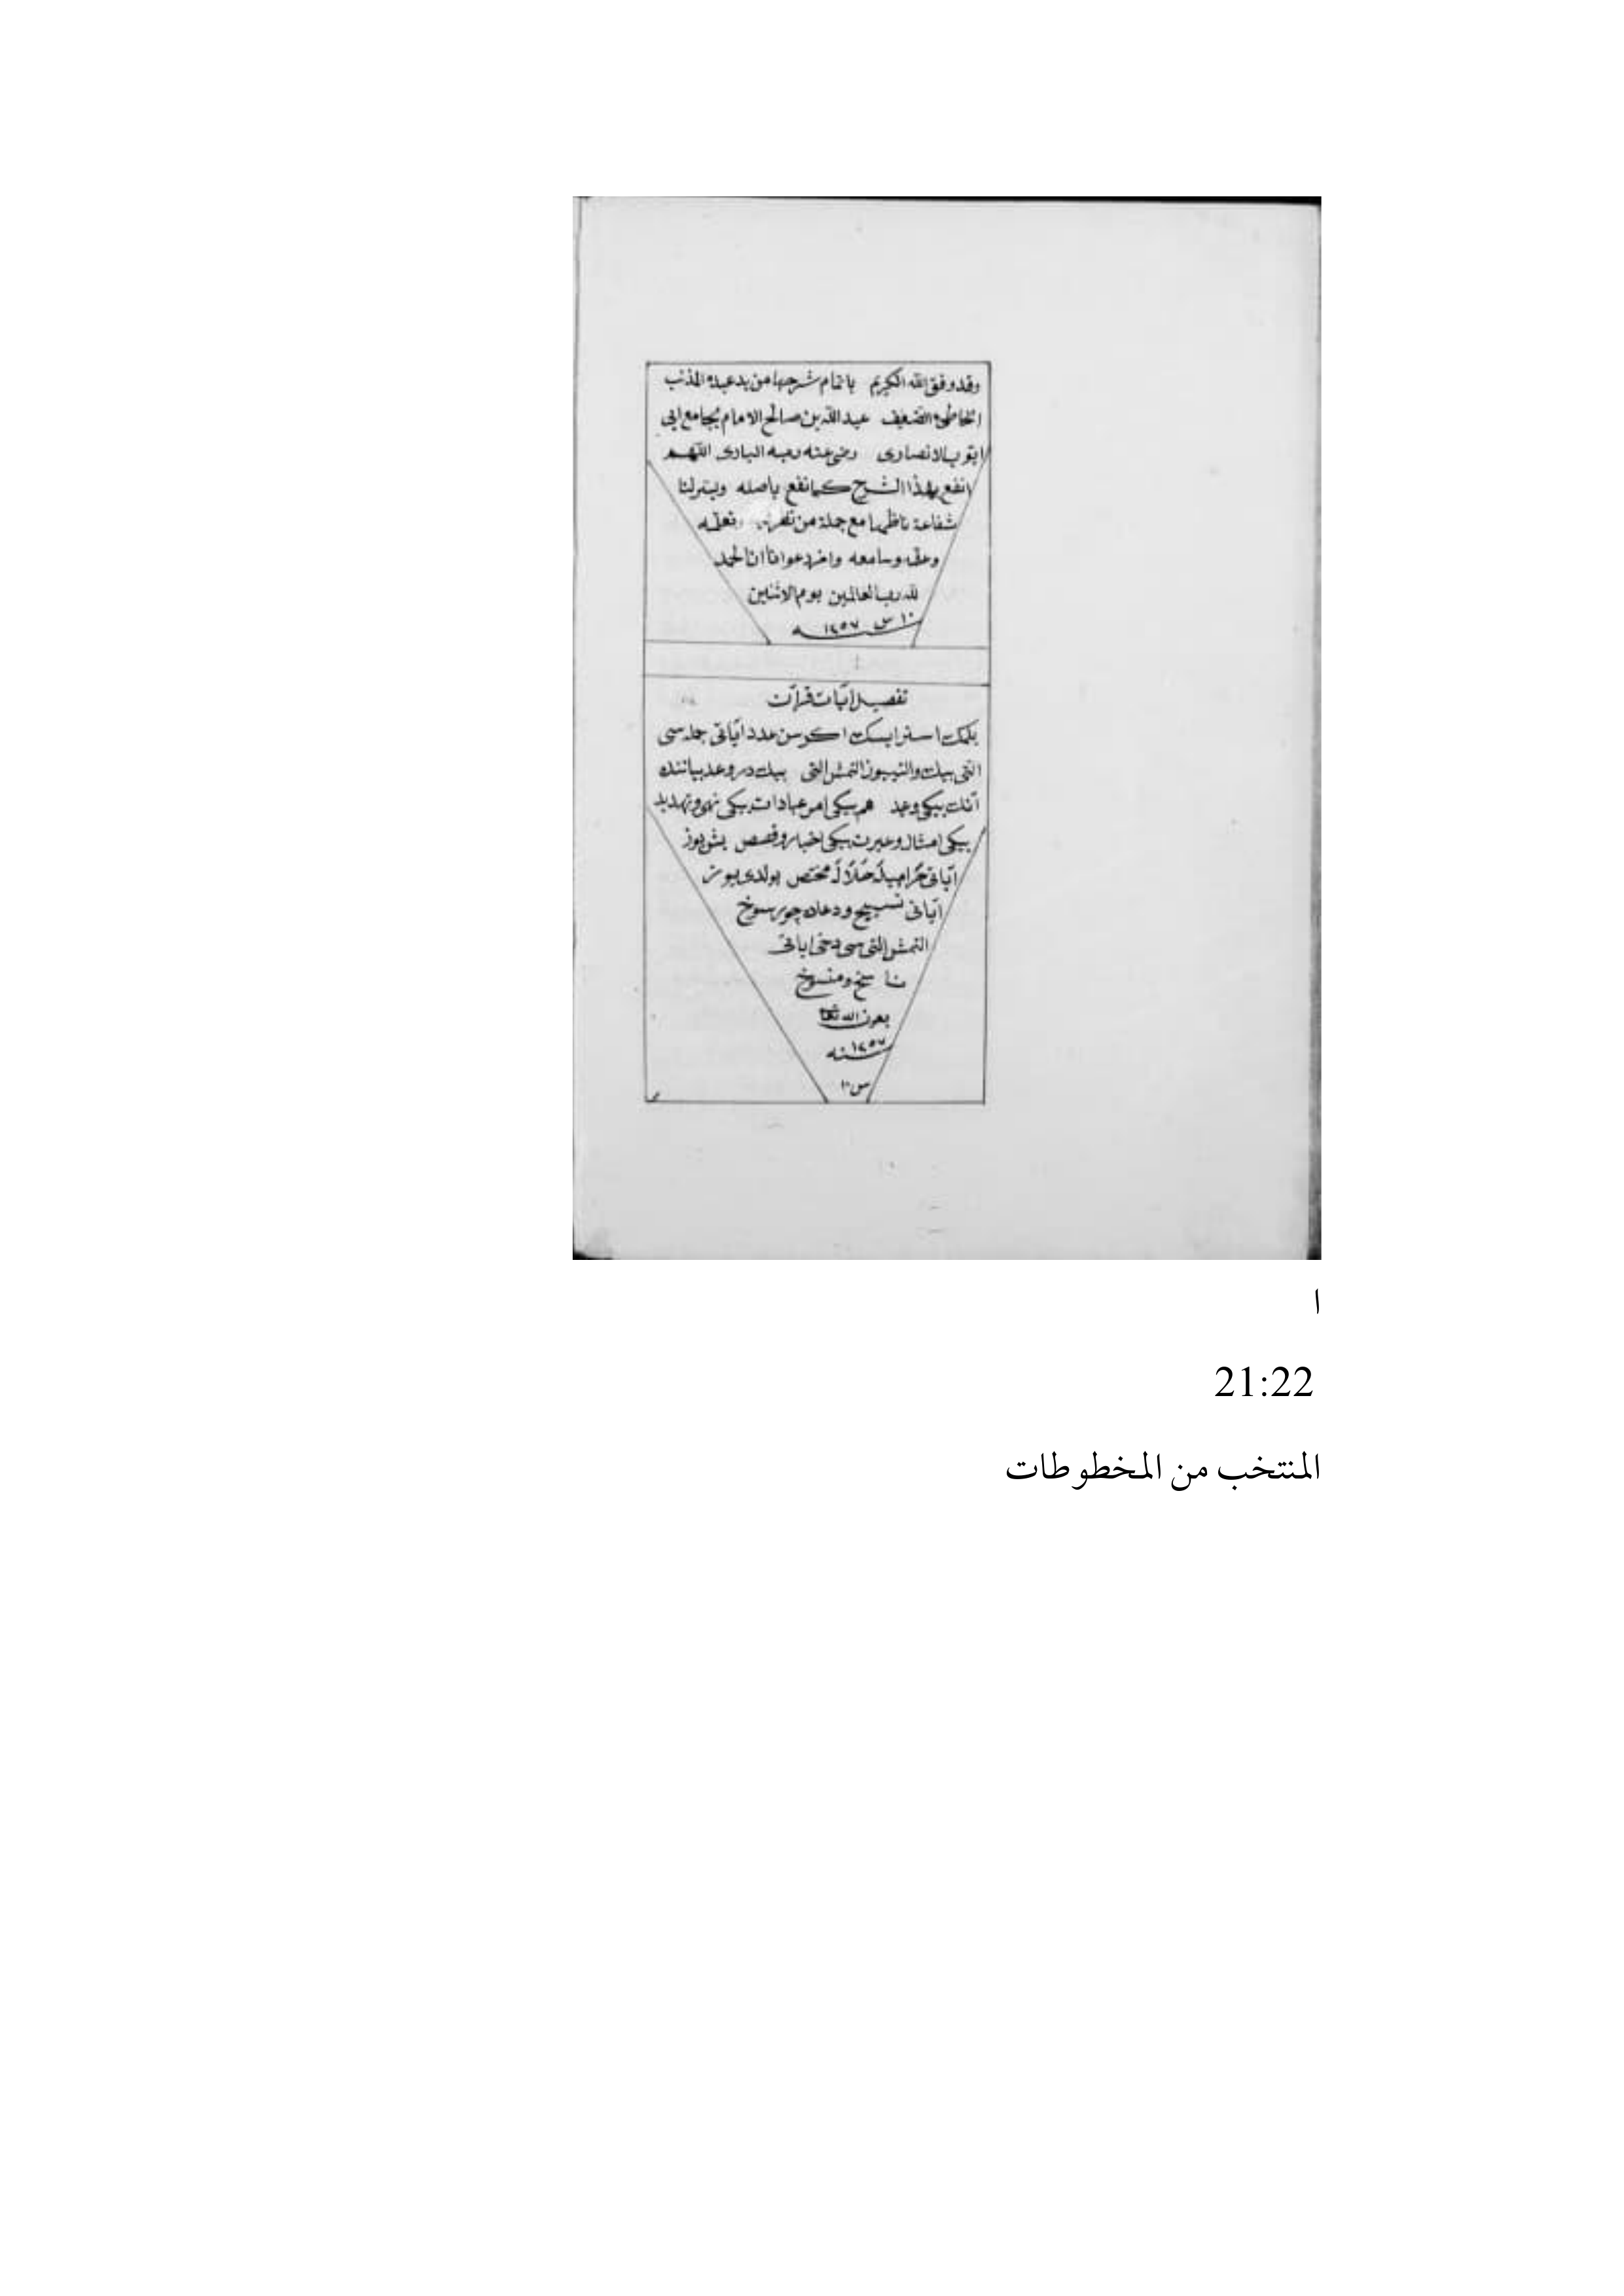 وقد وفق الله الكريم باتمام شرحها من يد عبده المذنب
الخاطئ الضعيف عبد الله بن صالح الامام بجامع ابى
ايوب الانصارى رضى عنه ربه البارى اللهم
انفع بهذا الشرح كما نفع باصله ويسر لنا
شفاعة ناظمها مع جملة من
وسامعه واخر دعوانا ان الحمد
لله رب العالمين يوم الاثنين
١٠ س ١٢٥٧ سنه
تفصيل ايات قرآن
بلمك استرايسك اكر سن عدد اياتى جمله سى
التى بيك والتييوز التمش التى بيكدر وعد بياننده
آنك بيكى وعيد هم بيكى امر عبادات بيكى نهى وتهديد
بيكى امثال وعبرت بيكى اخبار وقصص بشيوز
اياتى حراميله حلاله مختص بولدى يوز
اياتى تسبيح ودعاده
التمش التى سى دخى اياتى
ناسخ ومنسوخ
بعون الله تعالى
سنه ١٢٥٧
س ١٠
ا
21:22
المنتخب من المخطوطات